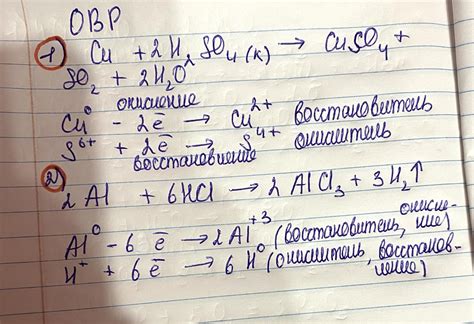 ОВР
1) Cu + 2H₂SO₄(к) → CuSO₄ +
SO₂ + 2H₂O
окисление
Cu⁰ - 2ē → Cu²⁺ восстановитель
S⁶⁺ + 2ē → S⁴⁺ окислитель
восстановление
2) 2Al + 6HCl → 2AlCl₃ + 3H₂↑
Al⁰ - 6ē → 2Al⁺³ (восстановитель, окисле-
ние)
H⁺ + 6ē → 6H⁰ (окислитель, восстанов-
ление)